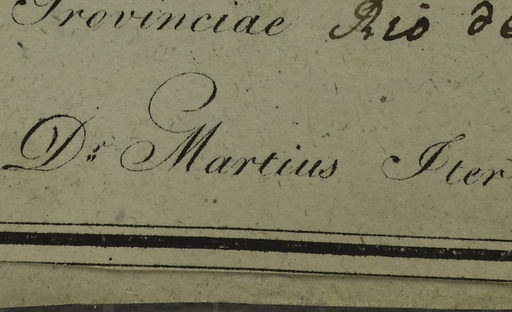 Provinciae Rio de
Dr. Martius Iter